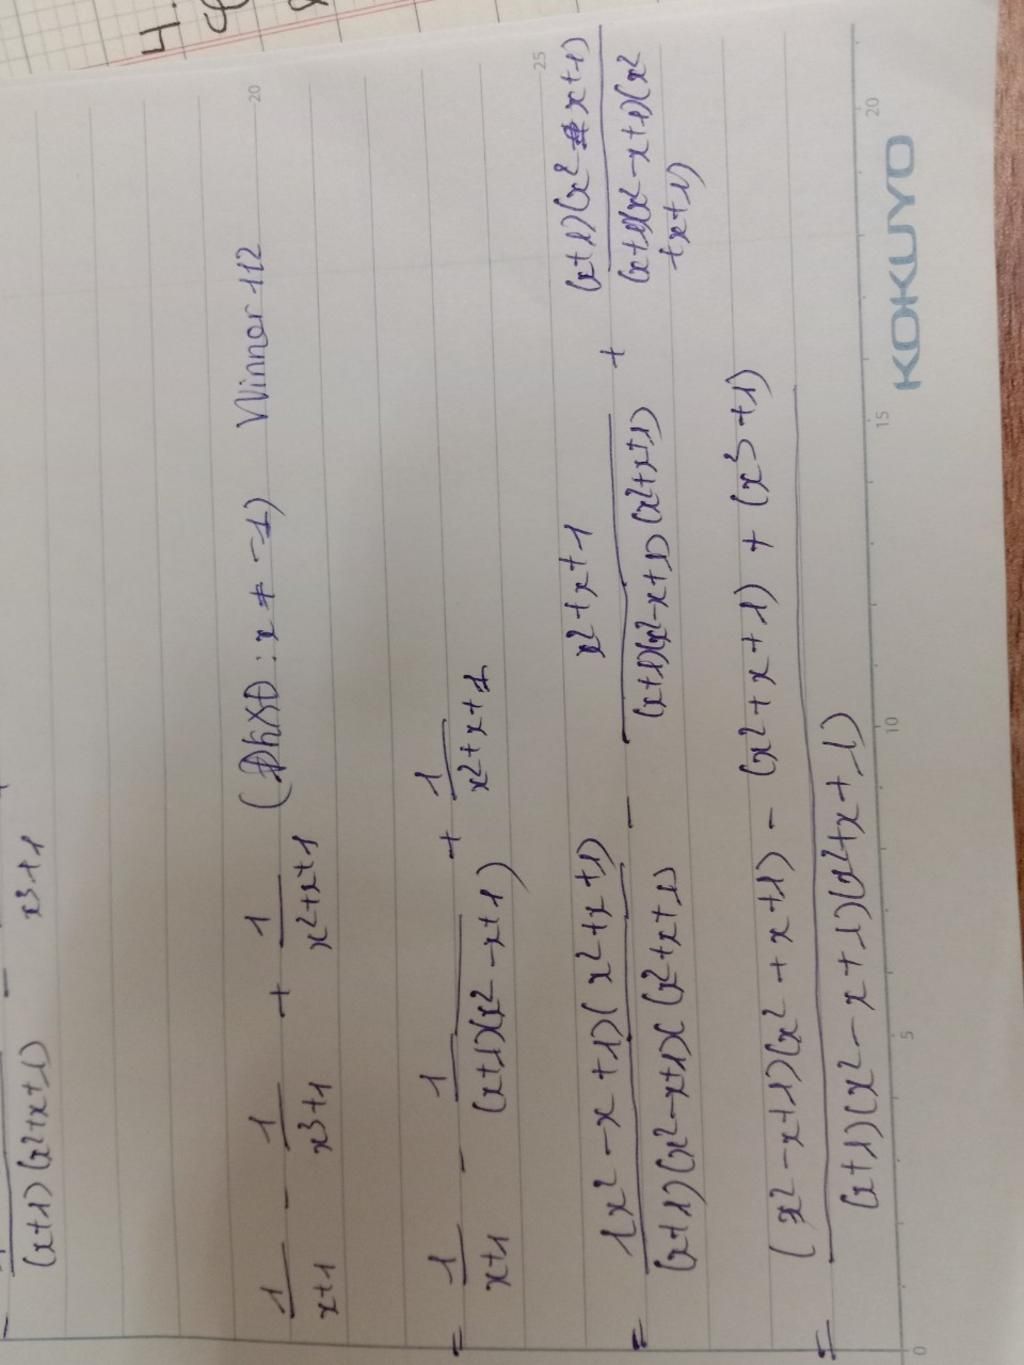 4.
(x+1)(x²+x+1) - x³+1
1/(x+1) - 1/(x³+1) + 1/(x²+x+1) (ĐKXĐ: x ≠ -1) Winner 112
= 1/(x+1) - 1/((x+1)(x²-x+1)) + 1/(x²+x+1)
= 1(x²-x+1)(x²+x+1)/((x+1)(x²-x+1)(x²+x+1)) - (x²+x+1)/((x+1)(x²-x+1)(x²+x+1)) + (x+1)(x²-x+1)/((x+1)(x²-x+1)(x²+x+1))
= ((x²-x+1)(x²+x+1) - (x²+x+1) + (x³+1))/((x+1)(x²-x+1)(x²+x+1))
0 5 10 15 20
20 25
KOKUYO